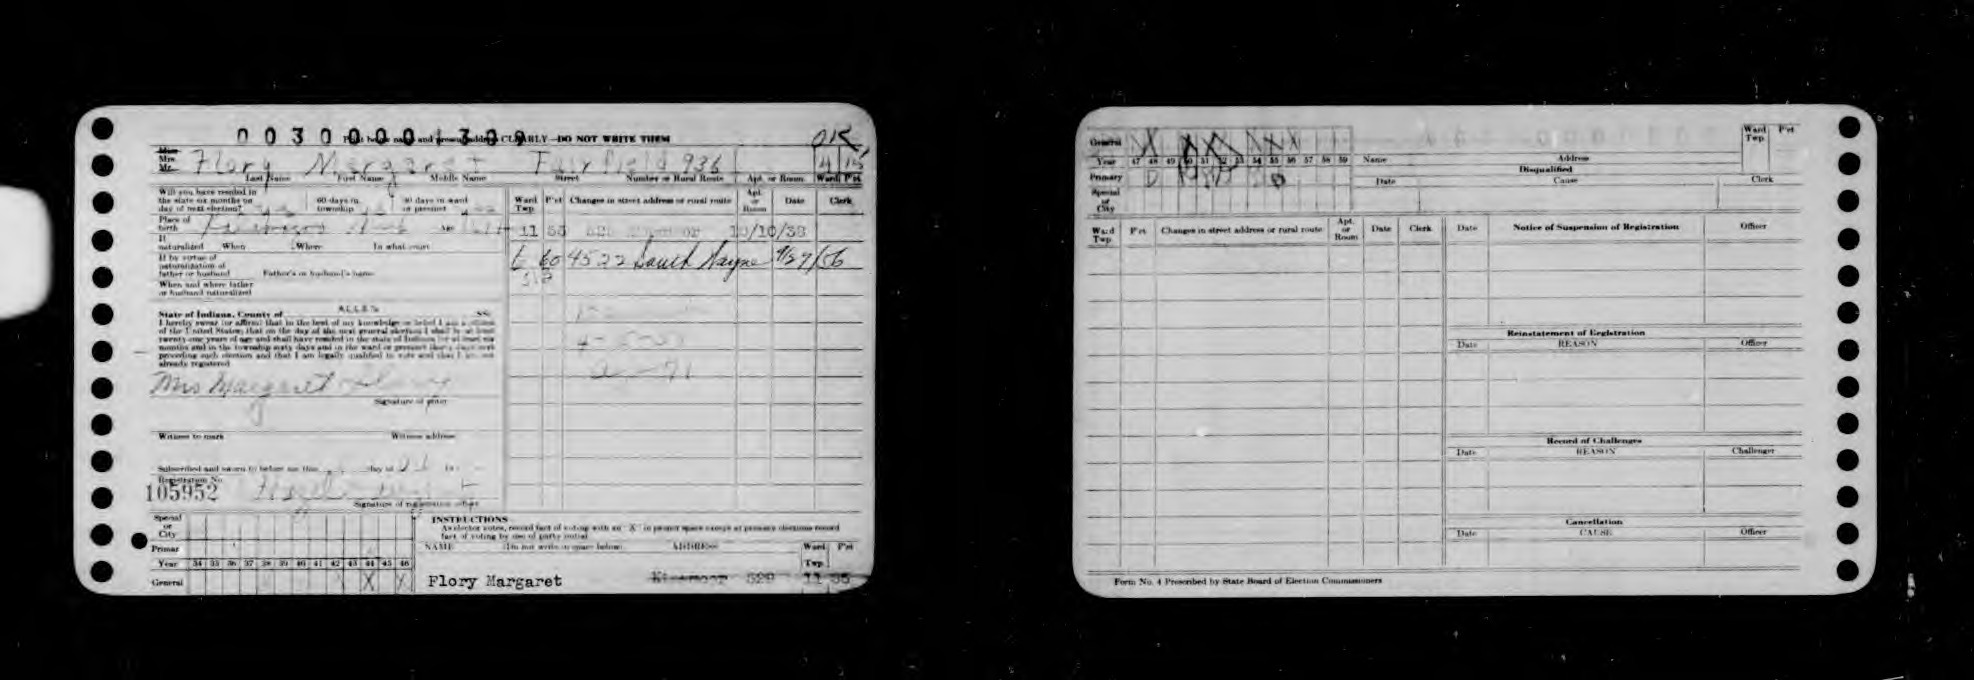 00300001309
Print below name and present address CLEARLY—DO NOT WRITE THEM
OK
Miss
Mrs.
Mr.
Flory Margaret Fairfield 936 4 15
Last Name First Name Middle Name Street Number or Rural Route Apt. or Room Ward P'ct
Will you have resided in
the state six months on
day of next election? yes
60 days in
township
30 days in ward
or precinct yes
Place of
birth
Age
If
naturalized When Where In what court
If by virtue of
naturalization of
father or husband Father's or husband's name
When and where father
or husband naturalized
State of Indiana, County of ALLEN SS:
I hereby swear (or affirm) that to the best of my knowledge or belief I am a citizen
of the United States; that on the day of the next general election I shall be at least
twenty-one years of age and shall have resided in the state of Indiana for at least six
months and in the township sixty days and in the ward or precinct thirty days next
preceding such election and that I am legally qualified to vote and that I am not
already registered
Mrs Margaret Flory
Signature of voter
Witness to mark Witness address
Subscribed and sworn to before me this day of
Registration No.
105952
Signature of registration officer
Ward
Twp. P'ct Changes in street address or rural route Apt.
or
Room Date Clerk
11 55 529 10/10/38
60 4522 South Wayne 9/27/56
Special
or
City
Primary
Year 34 35 36 37 38 39 40 41 42 43 44 45 46
General X X
INSTRUCTIONS
As elector votes, record fact of voting with an "X" in proper space except at primary elections record
fact of voting by use of party initial
NAME (Do not write in space below) ADDRESS Ward
Twp. P'ct
Flory Margaret Kinsmoor 529 11 55
General X X X X X X X
Year 47 48 49 50 51 52 53 54 55 56 57 58 59
Primary D
Special
or
City
Name Address Ward
Twp. P'ct
Disqualified
Date Cause Clerk
Ward
Twp. P'ct Changes in street address or rural route Apt.
or
Room Date Clerk
Date Notice of Suspension of Registration Officer
Reinstatement of Registration
Date REASON Officer
Record of Challenges
Date REASON Challenger
Cancellation
Date CAUSE Officer
Form No. 4 Prescribed by State Board of Election Commissioners